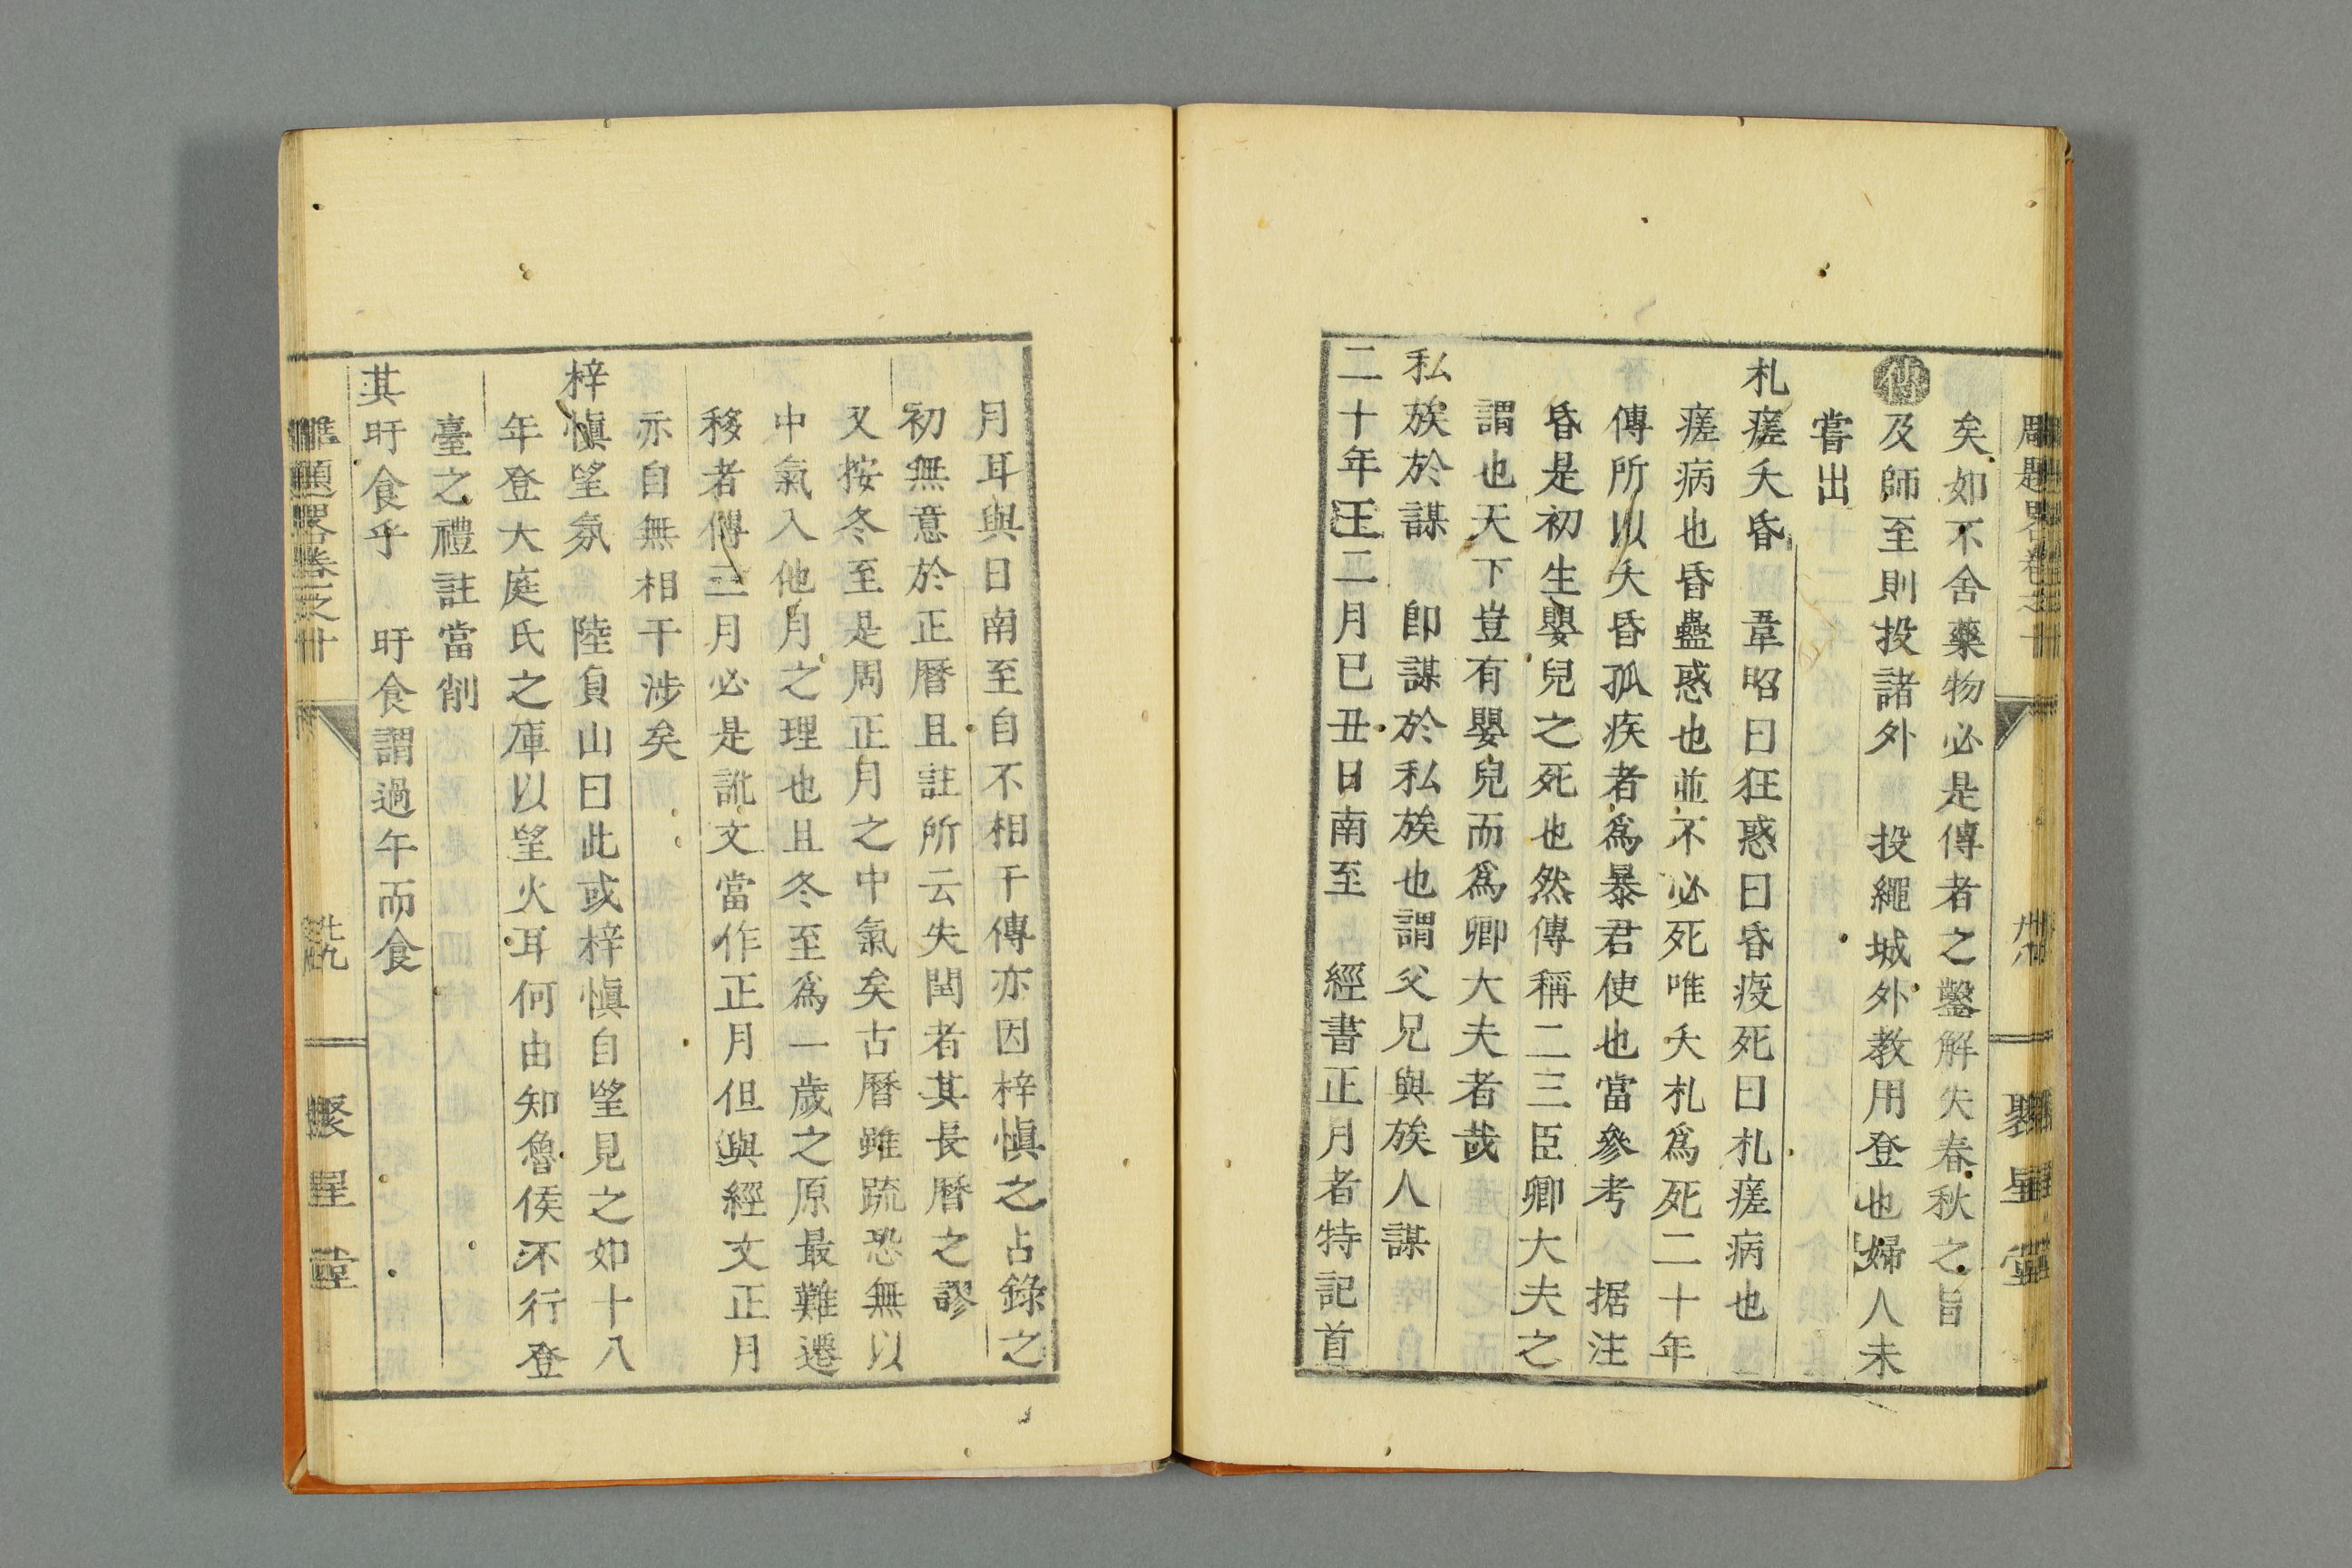 矣如不舍藥物必是傳者之鑿解失春秋之旨
傳及師至則投諸外 投繩城外教用登也婦人未
嘗出
札瘥夭昏 韋昭曰狂惑曰昏疫死曰札瘥病也
瘥病也昏蠱惑也並不必死唯夭札爲死二十年
傳所以夭昏孤疾者爲暴君使也當參考 据注
昏是初生嬰兒之死也然傳稱二三臣卿大夫之
謂也天下豈有嬰兒而爲卿大夫者哉
私族於謀 卽謀於私族也謂父兄與族人謀
二十年王二月已丑日南至 經書正月者特記首
月耳與日南至自不相干傳亦因梓愼之占錄之
初無意於正曆且註所云失閏者其長曆之謬
又按冬至是周正月之中氣矣古曆雖䟽恐無以
中氣入他月之理也且冬至爲一歲之原最難遷
移者傳三月必是訛文當作正月但與經文正月
亦自無相干涉矣
梓愼望氛 陸負山曰此或梓愼自望見之如十八
年登大庭氏之庫以望火耳何由知魯侯不行登
臺之禮註當削
其旰食乎 旰食謂過午而食
雕題畧卷之廿
聚星堂